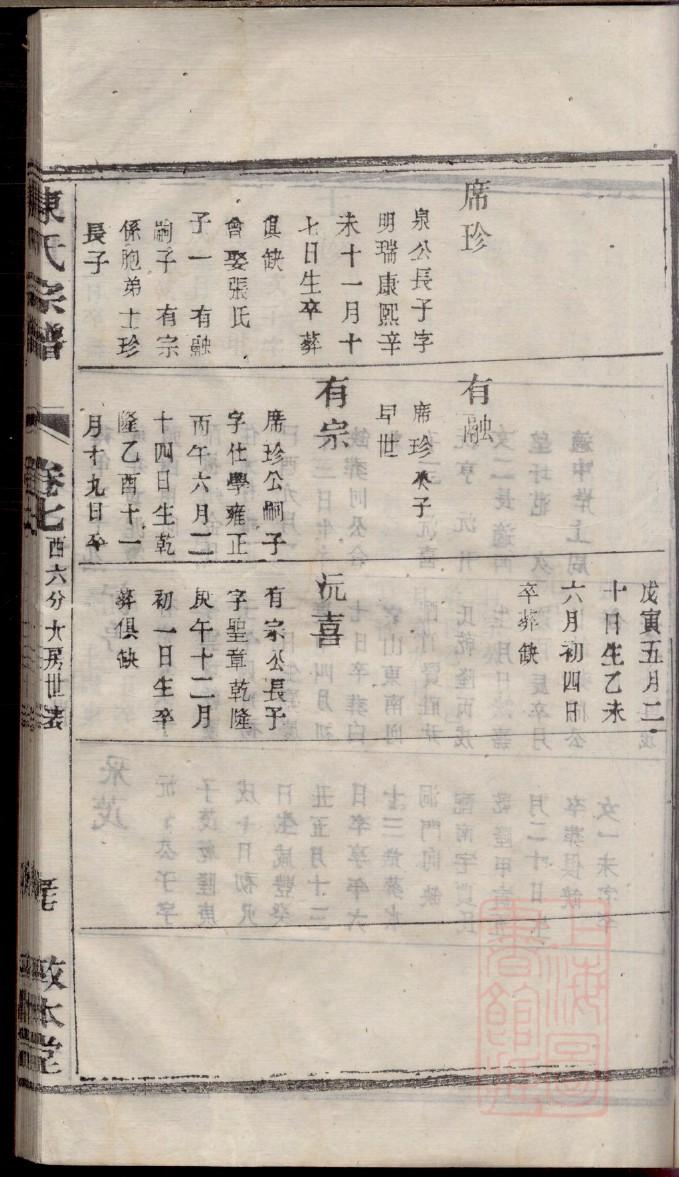 席珍
泉公長子字
明瑞康熙辛
未十一月十
七日生卒葬
俱缺
會娶張氏
子一 有融
嗣子 有宗
係胞弟士珍
長子
有融
席珍次子
早世
有宗
席珍公嗣子
字仕學雍正
丙午六月二
十四日生乾
隆乙酉十一
月十九日卒
戊寅五月二
十日生乙未
六月初四日
卒葬缺
沅喜
有宗公長子
字聖章乾隆
庚午十二月
初一日生卒
葬俱缺
陳氏宗譜
卷七
酉六分大房世表
敦本堂
上海圖書館藏